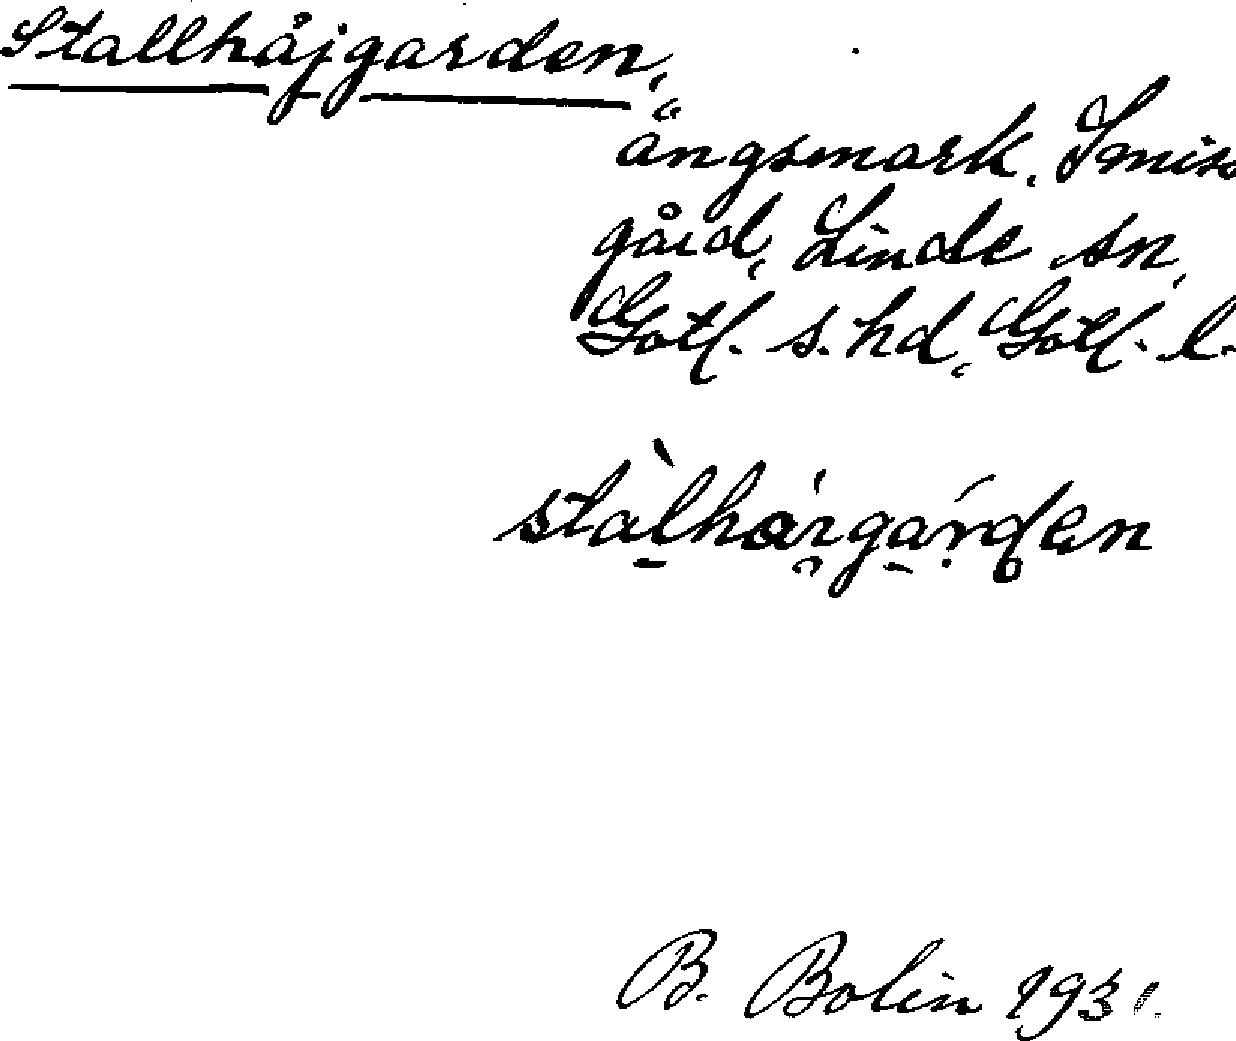 Stallhåjgarden,
ängsmark, Smiss
gård, Linde sn,
Gotl. s. hd, Gotl. l.
B. Bolin 1931.